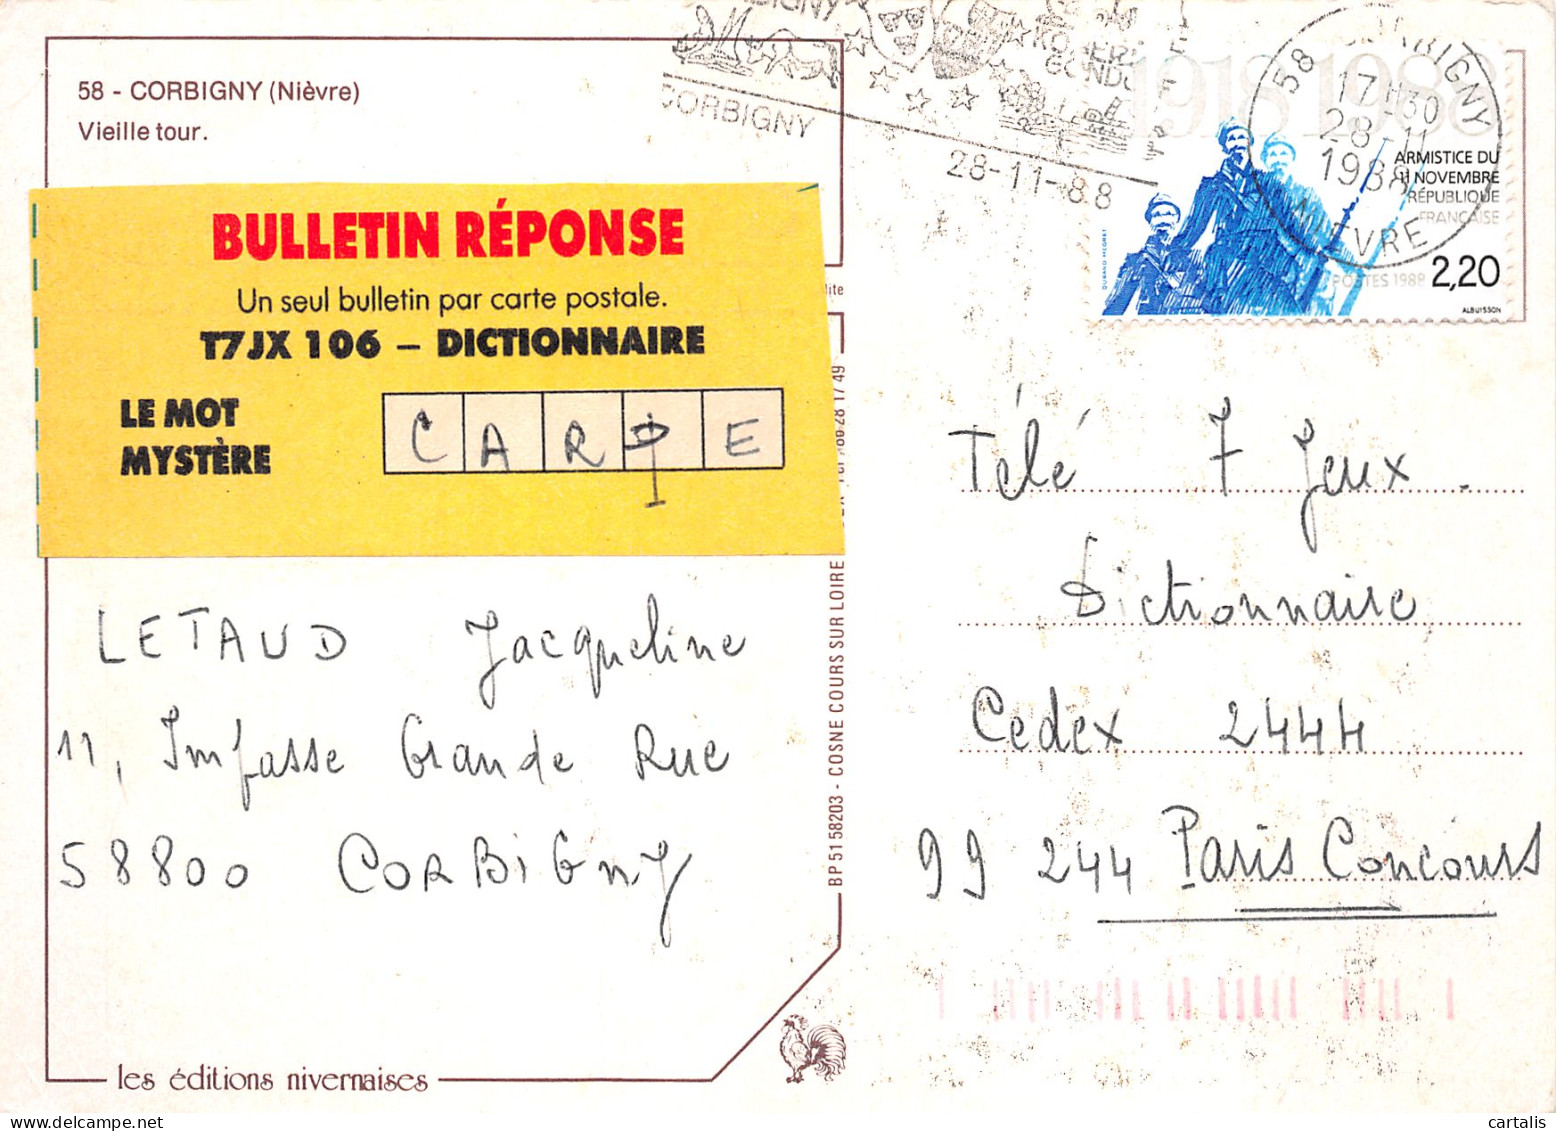 58 - CORBIGNY (Nièvre)
Vieille tour.
BULLETIN RÉPONSE
Un seul bulletin par carte postale.
T7JX 106 – DICTIONNAIRE
LE MOT
MYSTÈRE
C A R P E
LETAUD Jacqueline
11, Impasse Grande Rue
58800 CORBIGNY
les éditions nivernaises
BP 51 58203 - COSNE COURS SUR LOIRE
86 28 17 49
CORBIGNY
28-11-88
58 CORBIGNY
17H30
28-11
1988
NIÈVRE
1918 1988
ARMISTICE DU
11 NOVEMBRE
RÉPUBLIQUE
FRANÇAISE
POSTES 1988 2,20
DURAND-MEGRET
ALBUISSON
Télé 7 Jeux.
Dictionnaire
Cedex 2444
99 244 Paris Concours
les éditions nivernaises
cartalis